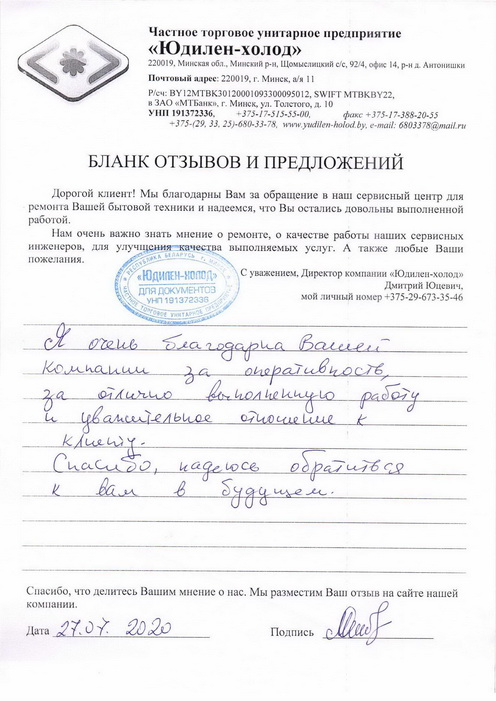 Частное торговое унитарное предприятие
«Юдилен-холод»
220019, Минская обл., Минский р-н, Щомыслицкий с/с, 92/4, офис 14, р-н д. Антонишки
Почтовый адрес: 220019, г. Минск, а/я 11
Р/сч: BY12MTBK30120001093300095012, SWIFT MTBKBY22,
в ЗАО «МТБанк», г. Минск, ул. Толстого, д. 10
УНП 191372336, +375-17-515-55-00, факс +375-17-388-20-55
+375-(29, 33, 25)-680-33-78, www.yudilen-holod.by, e-mail: 6803378@mail.ru
БЛАНК ОТЗЫВОВ И ПРЕДЛОЖЕНИЙ
Дорогой клиент! Мы благодарны Вам за обращение в наш сервисный центр для
ремонта Вашей бытовой техники и надеемся, что Вы остались довольны выполненной
работой.
Нам очень важно знать мнение о ремонте, о качестве работы наших сервисных
инженеров, для улучшения качества выполняемых услуг. А также любые Ваши
пожелания.
С уважением, Директор компании «Юдилен-холод»
Дмитрий Юцевич,
мой личный номер +375-29-673-35-46
РЕСПУБЛИКА БЕЛАРУСЬ г. МИНСК
«ЮДИЛЕН-ХОЛОД»
ДЛЯ ДОКУМЕНТОВ
УНП 191372336
ЧАСТНОЕ ТОРГОВОЕ УНИТАРНОЕ ПРЕДПРИЯТИЕ
Я очень благодарна Вашей
компании за оперативность,
за отлично выполненную работу
и уважительное отношение к
клиенту.
Спасибо, надеюсь обратиться
к вам в будущем.
Спасибо, что делитесь Вашим мнение о нас. Мы разместим Ваш отзыв на сайте нашей
компании.
Дата 27.07. 2020 Подпись